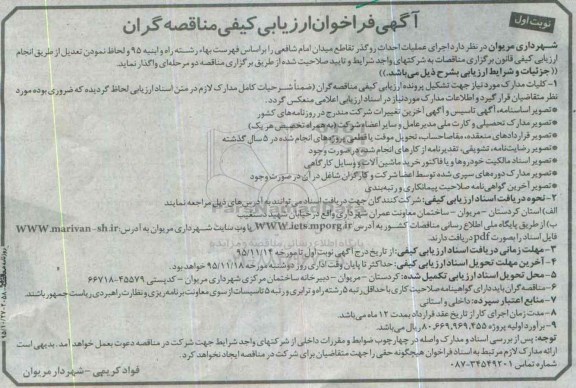 نوبت اول
آگهی فراخوان ارزیابی کیفی مناقصه گران
شهرداری مریوان در نظر دارد اجرای عملیات احداث روگذر تقاطع میدان امام شافعی را براساس فهرست بهاء رشته راه و ابنیه ۹۵ و لحاظ نمودن تعدیل از طریق انجام
ارزیابی کیفی قانون برگزاری مناقصات به شرکتهای واجد شرایط و تایید صلاحیت شده از طریق برگزاری مناقصه دو مرحله‌ای واگذار نماید.
((جزئیات و شرایط ارزیابی بشرح ذیل می‌باشد.))
۱- کلیات مدارک مورد نیاز جهت تشکیل پرونده ارزیابی کیفی مناقصه گران (ضمناً شرحیات کامل مدارک لازم در متن اسناد ارزیابی لحاظ گردیده که ضروری بوده مورد
نظر متقاضیان قرار گیرد و اطلاعات مدارک مورد نیاز در اسناد ارزیابی اعلامی منعکس گردد.
تصویر اساسنامه، آگهی تاسیس و آگهی آخرین تغییرات شرکت مندرج در روزنامه‌های کشور
تصویر مدارک تحصیلی و کارت ملی مدیرعامل و سایر اعضاء شرکت (به همراه تخصص هر یک)
تصویر قراردادهای منعقده، مفاصاحساب، تحویل موقت یا قطعی پروژه‌های انجام شده در ۵ سال گذشته
تصویر رضایت‌نامه، تشویقی، تقدیرنامه از کارهای انجام شده در صورت وجود
تصویر اسناد مالکیت خودروها و یا فاکتور خرید ماشین آلات و وسایل کارگاهی
تصویر مدارک دوره‌های سپری شده توسط اعضا شرکت و کارگران شاغل در آن در صورت وجود
تصویر آخرین گواهی‌نامه صلاحیت پیمانکاری و رتبه‌بندی
۲- نحوه دریافت اسناد ارزیابی کیفی: شرکت کنندگان جهت دریافت اسناد می توانند به آدرس‌های ذیل مراجعه نمایند
الف) استان کردستان - مریوان - ساختمان معاونت عمران شهرداری واقع در خیابان شهید
ب) از طریق پایگاه ملی اطلاع رسانی مناقصات کشور به آدرس www.iets.mporg.ir یا وب سایت شهرداری مریوان به آدرس www.marivan-sh.ir
فایل اسناد را بصورت pdf دریافت دارند.
۳- مهلت زمانی دریافت اسناد ارزیابی کیفی: از تاریخ درج آگهی نوبت اول تا مورخه ۹۵/۱۱/۱۴
۴- آخرین مهلت تحویل اسناد ارزیابی کیفی: حداکثر تا پایان وقت اداری روز دوشنبه مورخه ۹۵/۱۱/۱۸ خواهد بود.
۵- محل تحویل اسناد ارزیابی تکمیل شده: کردستان - مریوان - دبیرخانه ساختمان مرکزی شهرداری مریوان - کدپستی ۴۵۵۷۹-۶۶۷۱۸
۶- مناقصه گران باید دارای گواهینامه صلاحیت کاری با حداقل رتبه ۵ رشته راه و ترابری و رتبه ۵ تاسیسات از سوی معاونت برنامه‌ریزی و نظارت راهبردی ریاست جمهور باشند.
۷- منابع اعتبار سپرده: داخلی و استانی
۸- مدت زمان اجرای کار از تاریخ عقد قرارداد بمدت ۱۲ ماه می‌باشد.
۹- برآورد اولیه پروژه ۸۰,۶۶۹,۹۶۹,۴۵۵ ریال می‌باشد.
توجه: پس از بررسی اسناد و مدارک واصله در چهارچوب ضوابط و مقررات داخلی از شرکتهای واجد شرایط جهت شرکت در مناقصه دعوت بعمل خواهد آمد. بدیهی است
ارائه مدارک لازم مرتبط به اسناد فراخوان هیچگونه حقی را جهت متقاضیان برای شرکت در مناقصه ایجاد نخواهد کرد.
شماره تماس ۳۴۵۴۹۲۰۱-۰۸۷
فواد کریمی - شهردار مریوان